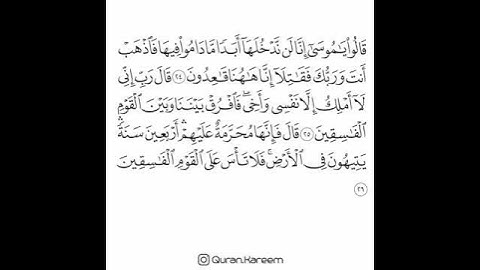 قَالُوا۟ يَـٰمُوسَىٰٓ إِنَّا لَن نَّدْخُلَهَآ أَبَدًا مَّا دَامُوا۟ فِيهَا فَٱذْهَبْ
أَنتَ وَرَبُّكَ فَقَـٰتِلَآ إِنَّا هَـٰهُنَا قَـٰعِدُونَ ٢٤ قَالَ رَبِّ إِنِّى
لَآ أَمْلِكُ إِلَّا نَفْسِى وَأَخِى ۖ فَٱفْرُقْ بَيْنَنَا وَبَيْنَ ٱلْقَوْمِ
ٱلْفَـٰسِقِينَ ٢٥ قَالَ فَإِنَّهَا مُحَرَّمَةٌ عَلَيْهِمْ ۛ أَرْبَعِينَ سَنَةً ۛ
يَتِيهُونَ فِى ٱلْأَرْضِ ۚ فَلَا تَأْسَ عَلَى ٱلْقَوْمِ ٱلْفَـٰسِقِينَ
٢٦
Quran.Kareem